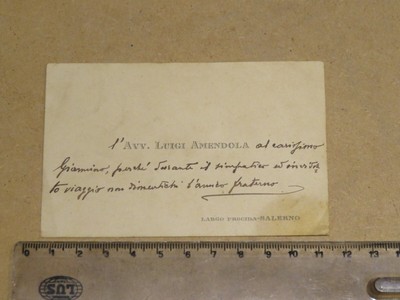 l'Avv. Luigi Amendola al carissimo
Giannino, perché durante il simpatico ed invidia
to viaggio non dimentichi l'amico fraterno
Largo Procida-Salerno
0 1 2 3 4 5 6 7 8 9 10 11 12 13
LUS